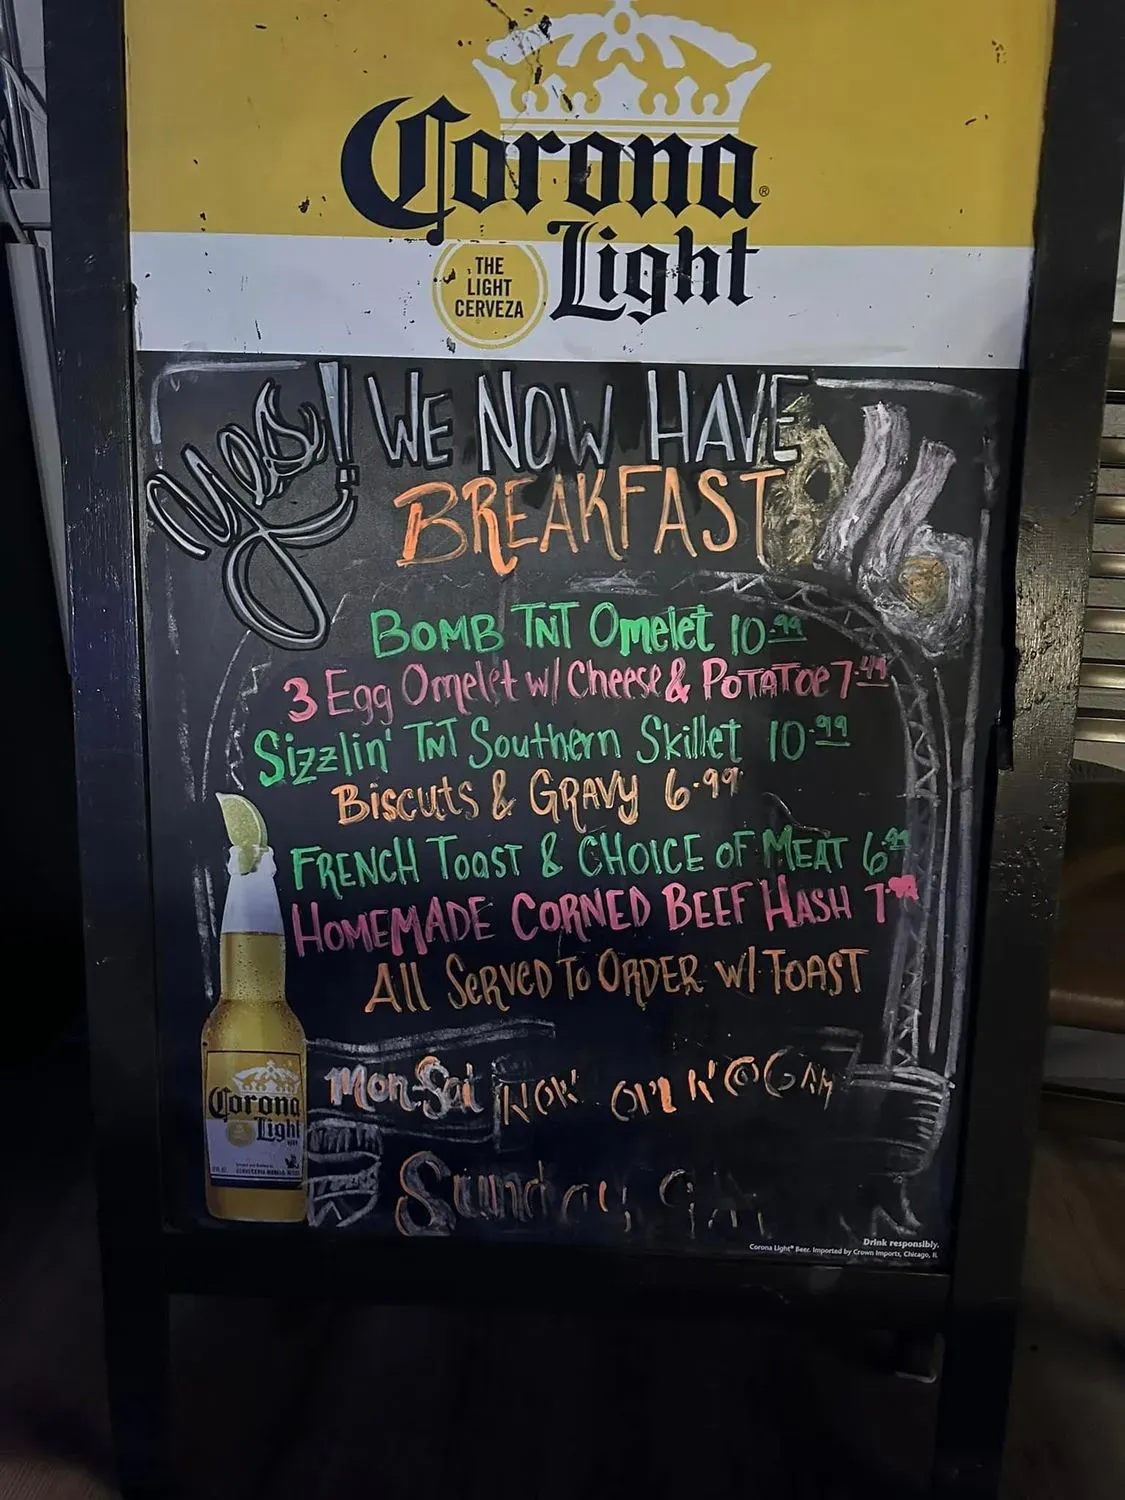 Corona®
Light
THE
LIGHT
CERVEZA
Yes! WE NOW HAVE
BREAKFAST
BOMB TNT Omelet 10.99
3 Egg Omelet w/ Cheese & POTATOE 7.49
Sizzlin' TNT Southern Skillet 10.99
Biscuts & GRAVY 6.99
FRENCH Toast & CHOICE OF MEAT 6.99
HOMEMADE CORNED BEEF HASH 7
All Served To ORDER w/ TOAST
Mon-Sat NOW OPEN @ 6 AM
Sunday 9A
Corona
Light
Drink responsibly.
Corona Light® Beer. Imported by Crown Imports, Chicago, IL